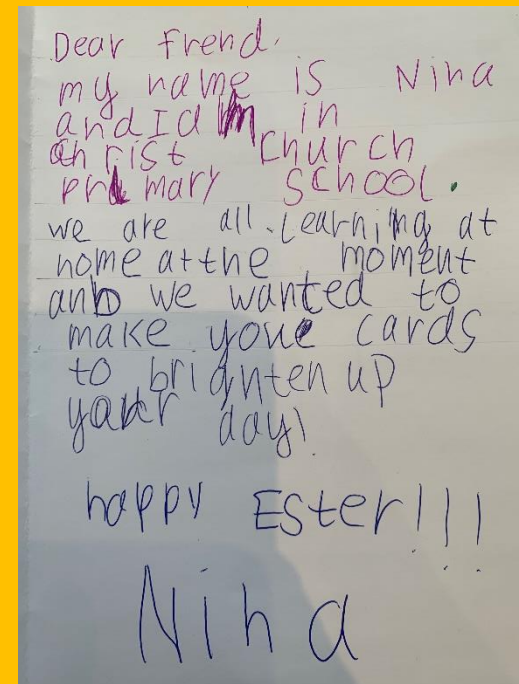 Dear frend.
my name is Nina
and I am in
Christ Church
primary school.
we are all learning at
home at the moment
and we wanted to
make youe cards
to brighten up
your day!
happy Ester!!!
Nina